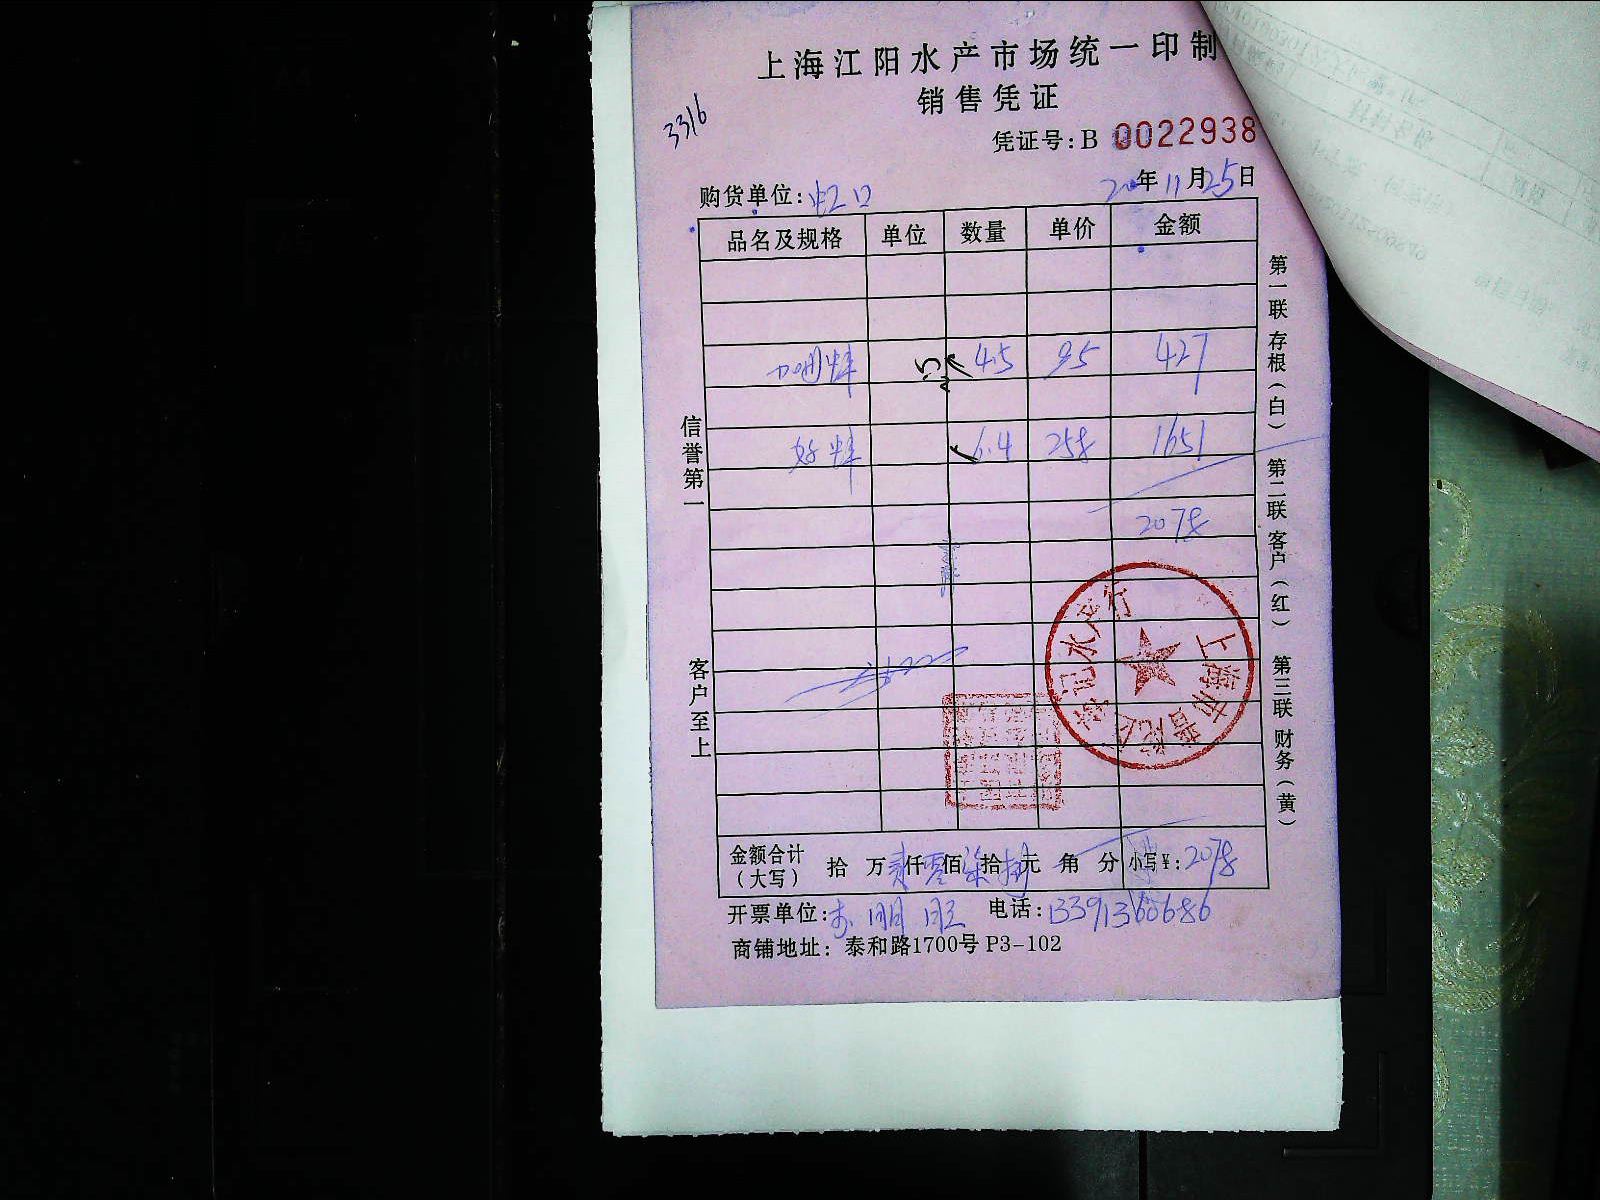 上海江阳水产市场统一印制
销售凭证
3316
凭证号:B 0022938
购货单位:虹口 20年11月25日
品名及规格 单位 数量 单价 金额
4.5 95 427
6.4 258 1651
2078
信誉第一
客户至上
第一联 存根(白) 第二联 客户(红) 第三联 财务(黄)
金额合计(大写) 拾 万 贰仟零佰柒拾捌元 角 分 小写¥:2078
开票单位: 明旺 电话:13391360686
商铺地址: 泰和路1700号 P3-102